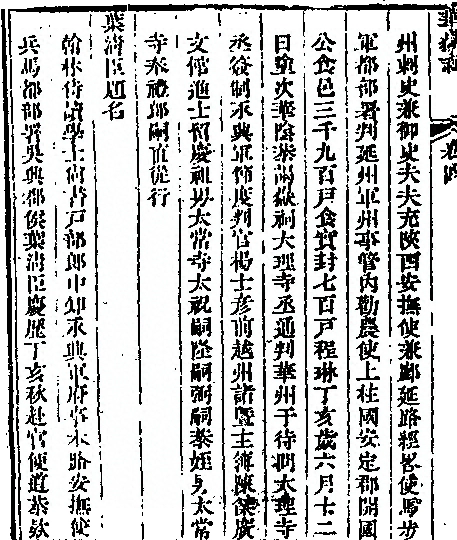 卷四
州刺史兼御史大夫充陝西安撫使兼鄜延路經畧使馬步
軍都部署判延州軍州事管內勸農使上柱國安定郡開國
公食邑三千九百戶食實封七百戶程琳丁亥歲六月十二
日重次華陰恭謁嶽祠大理寺丞通判華州于待問大理寺
丞簽制永興軍節度判官楊士彥前越州諸暨主簿陳傑廣
文館進士賀慶祖男太常寺太祝嗣隆嗣弼嗣恭姪男太常
寺奉禮郎嗣直從行
葉清臣題名
翰林侍讀學士尚書戶部郎中知永興軍府事本路安撫使
兵馬都部署吳興郡侯葉清臣慶歷丁亥秋赴官便道恭欵